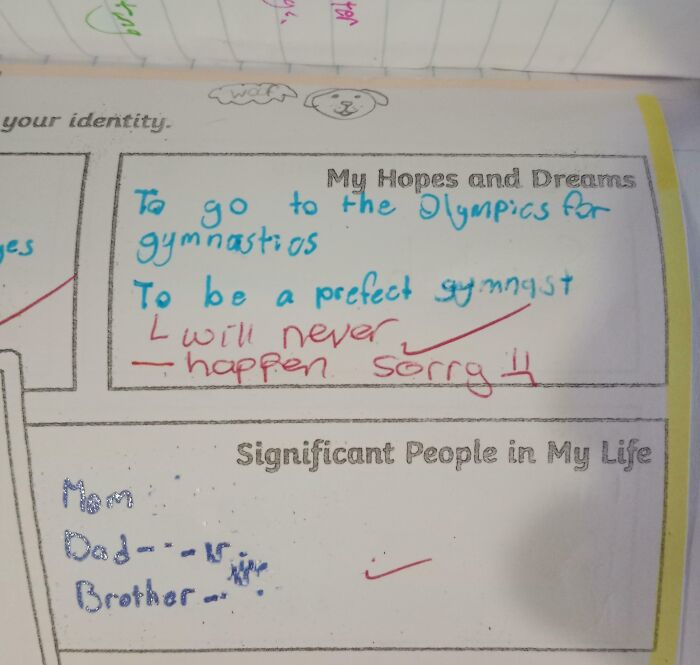 woof
your identity.
My Hopes and Dreams
To go to the Olympics for
gymnastics
To be a prefect gymnast
will never
happen sorry
Significant People in My Life
Mom
Dad
Brother